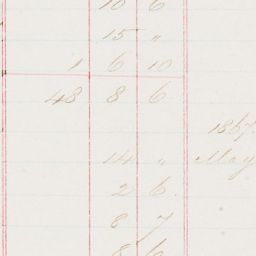 10 6
15 "
1 6 10
48 8 6
1867
14 " May
2 6
8 7
8 6